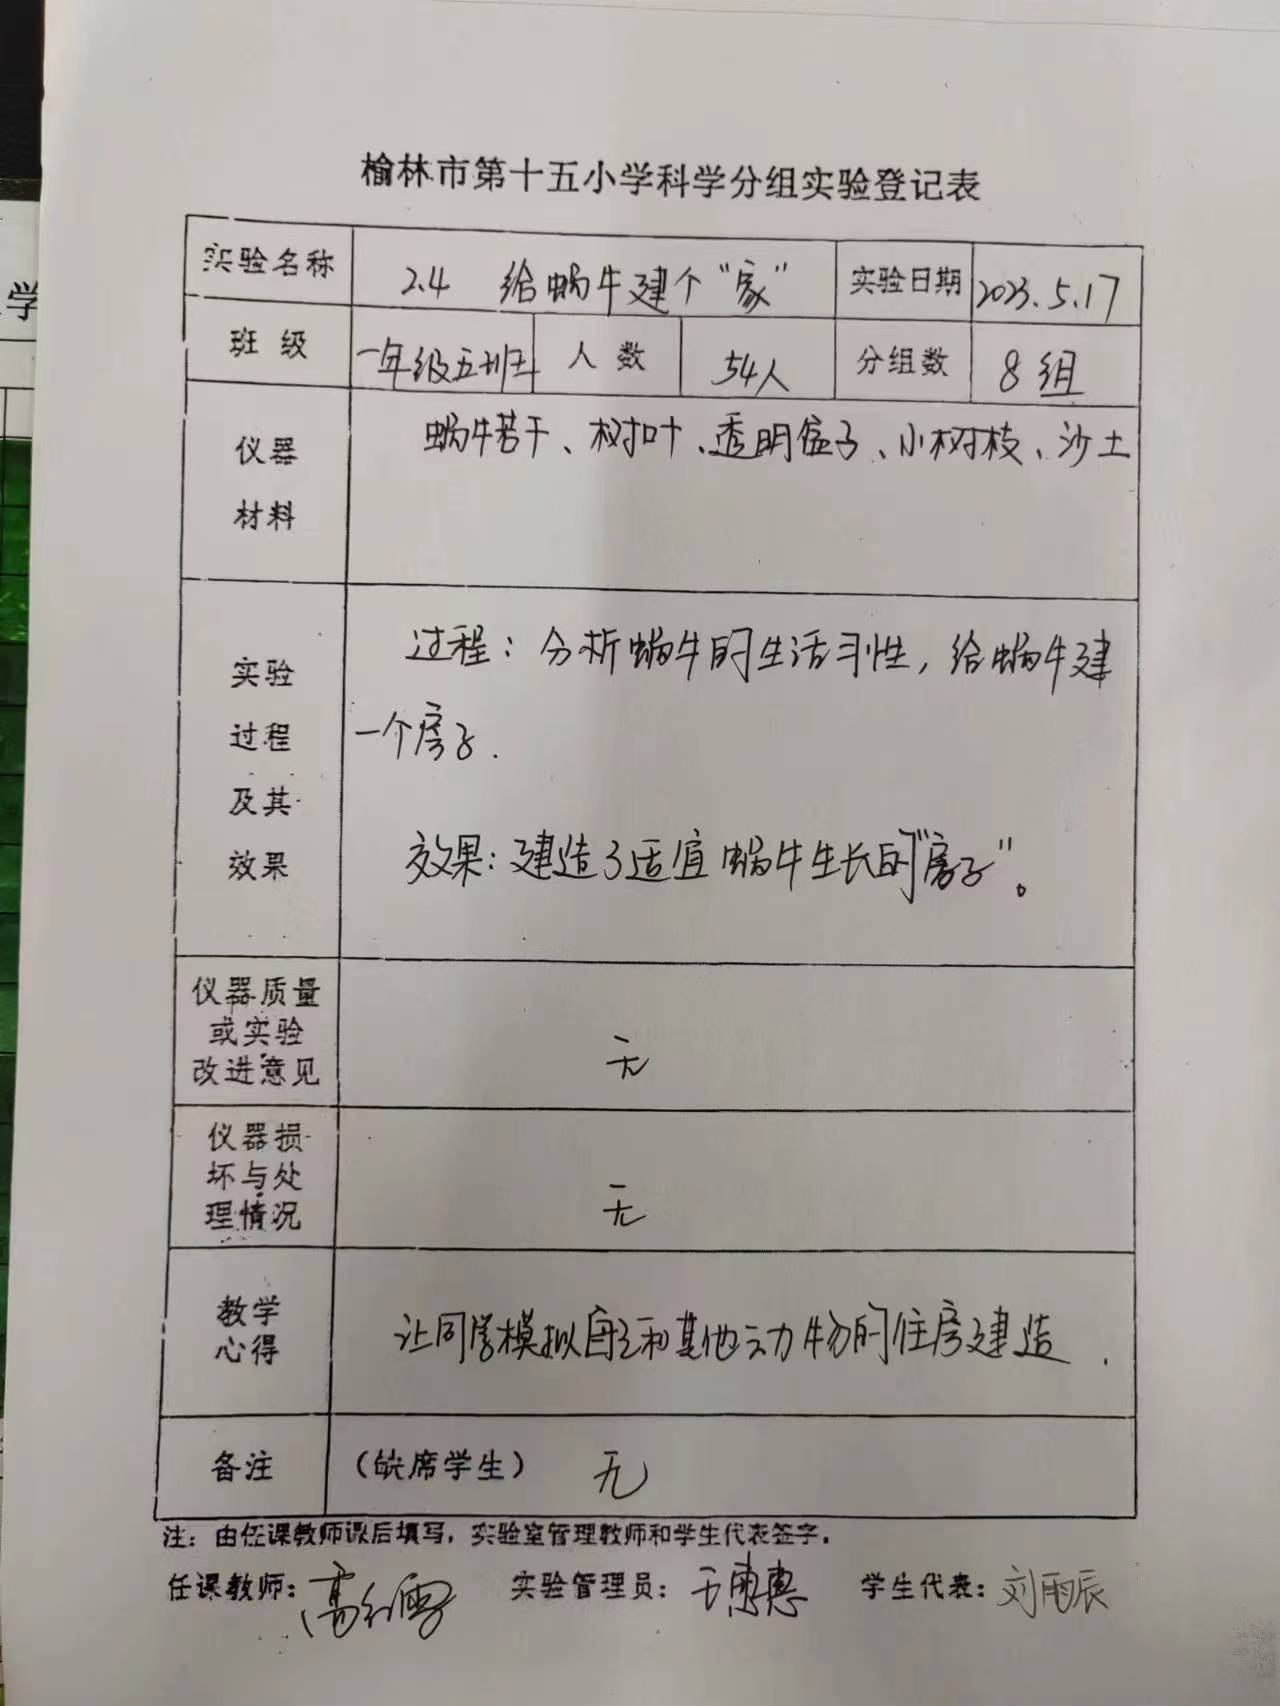 榆林市第十五小学科学分组实验登记表
实验名称 2.4 给蜗牛建个“家” 实验日期 2023.5.17
班级 一年级五班 人数 54人 分组数 8组
仪器材料 蜗牛若干、树叶、透明盒子、小树枝、沙土
实验过程及其效果
过程：分析蜗牛的生活习性，给蜗牛建
一个房子.
效果：建造了适宜蜗牛生长的“房子”。
仪器质量或实验改进意见 无
仪器损坏与处理情况 无
教学心得 让同学模拟自己和其他动物的住房建造.
备注 （缺席学生） 无
注：由任课教师课后填写，实验室管理教师和学生代表签字。
任课教师： 实验管理员： 王惠惠 学生代表：刘雨辰
学